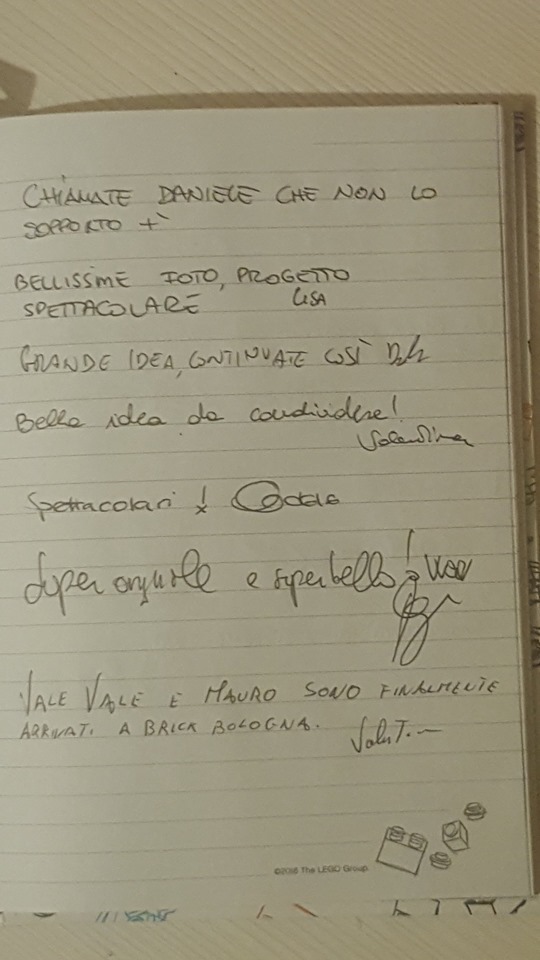 CHIAMATE DANIELE CHE NON LO
SOPPORTO +
BELLISSIME FOTO, PROGETTO
SPETTACOLARE LISA
GRANDE IDEA, CONTINUATE COSÌ
Bella idea da condividere!
Valentina
Spettacolari!
Super e superbello!
VALE VALE E MAURO SONO FINALMENTE
ARRIVATI A BRICK BOLOGNA.
©2016 The LEGO Group.